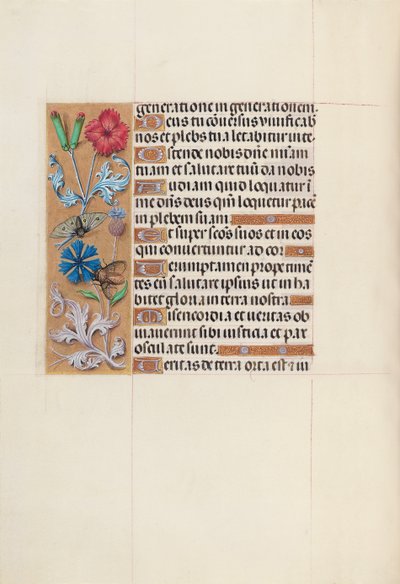 generatione in generationem.
Deus tu conversus vivificab
nos et plebs tua letabitur in te
Ostende nobis dñe miam
tuam et salutare tuũ da nobis
Audiam quid loquatur ĩ
me dñs deus qm̃ loquetur pacẽ
in plebem suam.
Et super scõs suos et in eos
qui convertuntur ad cor
Verumptamen prope timẽ
tes eũ salutare ipsius ut in ha
bitet gloria in terra nostra
Misericordia et veritas ob
viaverunt sibi iusticia et pax
osculate sunt.
Veritas de terra orta est & iu